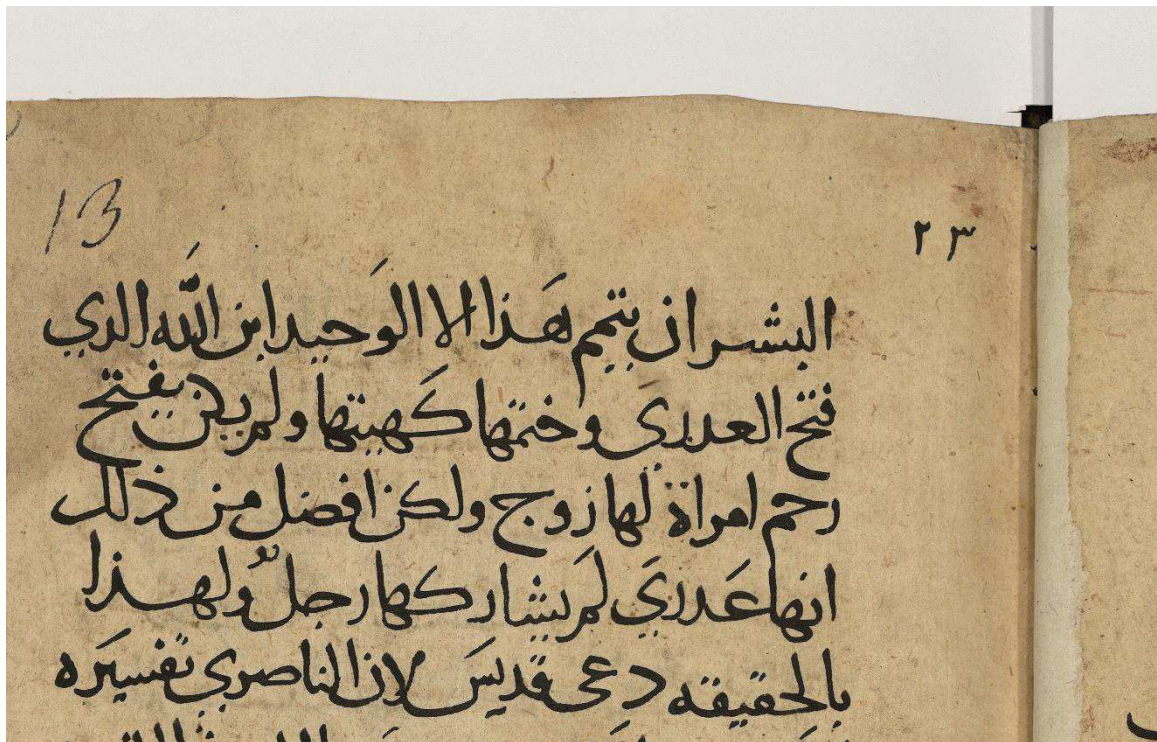 13
٢٣
البشر ان يتمم هَذا الا الوَحيد ابن اللَّه الدي
فتح العدرىَ وختمها كَهيتها ولم يكن يفتح
رحم امراة لها زوج ولكن افضل من ذلك
انها عَدرىَ لمَ يشاركها رجلٌ ولهذا
بالحقيقه دعى قديسَ لان الناصري تفسيَره